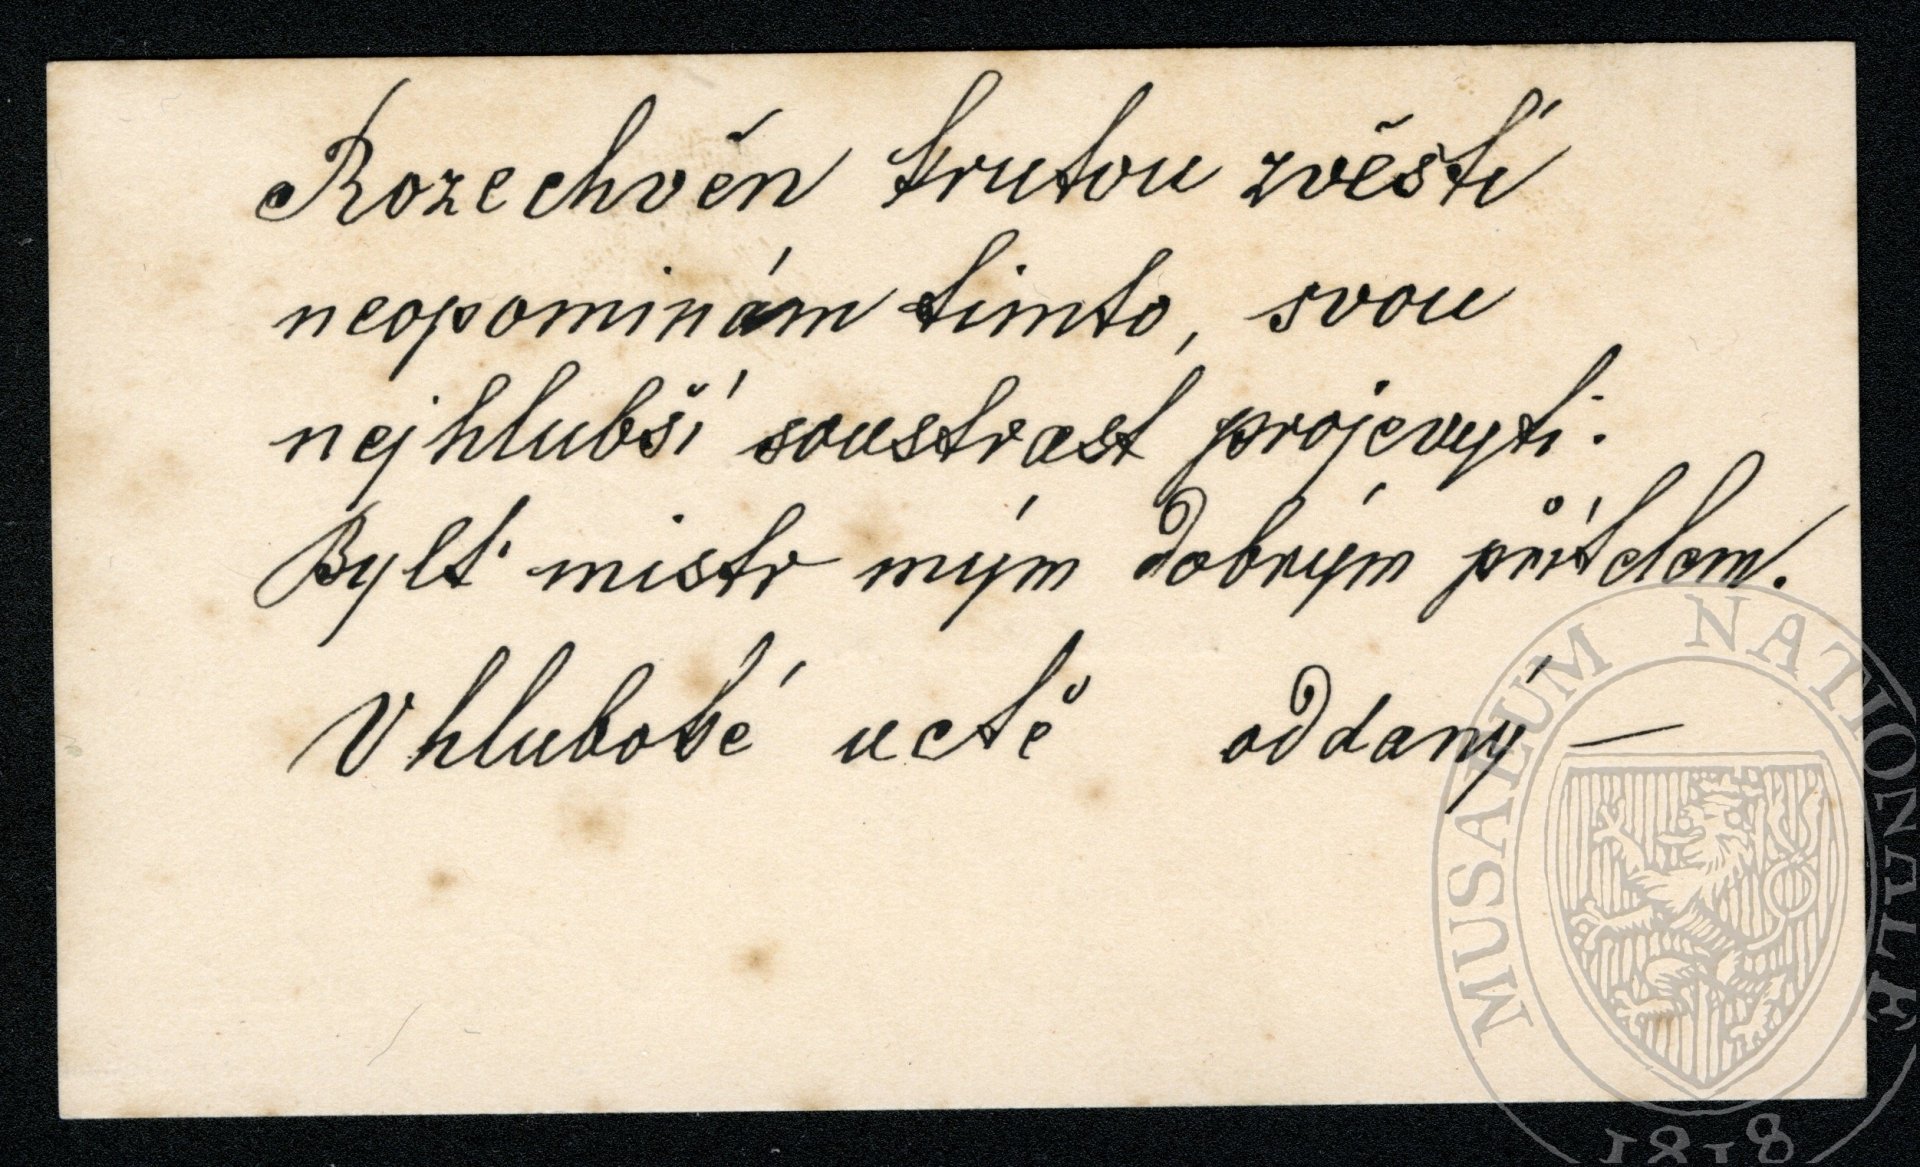 Rozechvěn krutou zvěstí
neopominám timto, svou
nejhlubší soustrast projevyti.
Bylť mistr mým dobrým přítelem.
V hluboké uctě oddaný —
MUSAEUM NATIONALE
1818